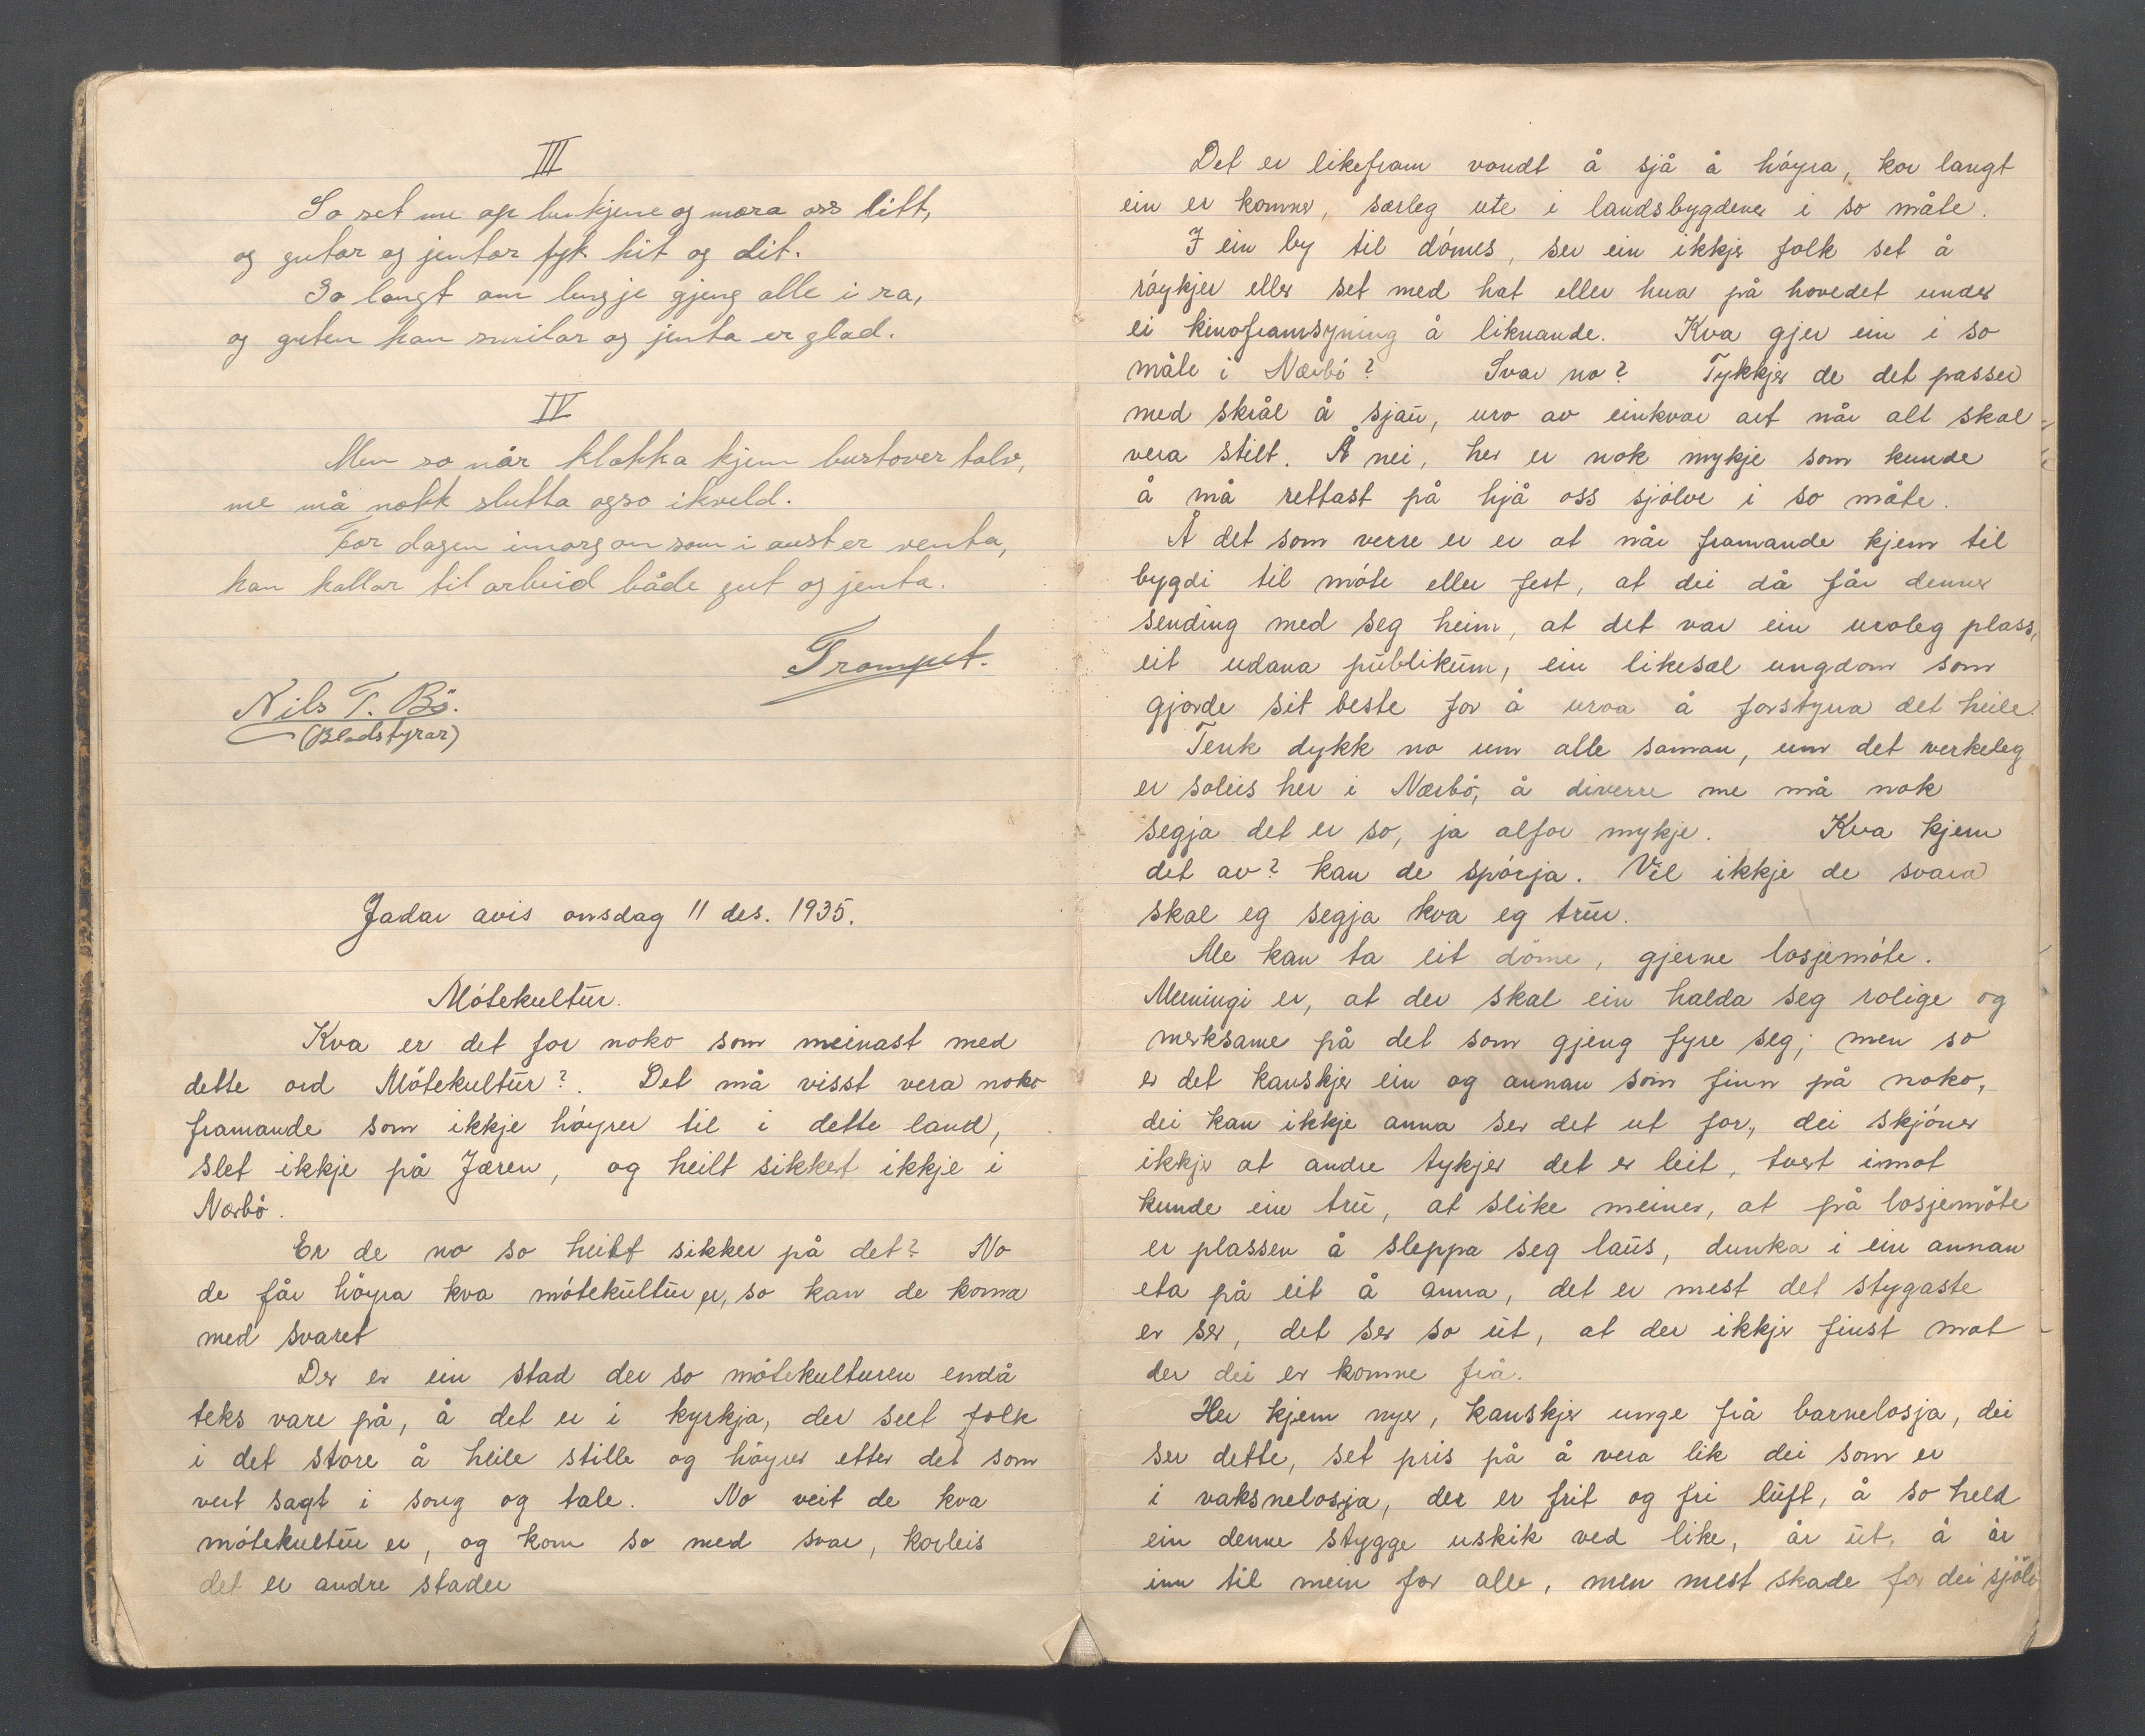 III
So set me op benkjene og mora oss litt,
og gutar og jentar fyk hit og dit.
So langt om lengje gjeng alle i ra,
og guten han smilar og jenta er glad.
IV
Men so når klokka kjem burtover tolv,
me må nokk slutta ogso ikveld.
For dagen imorgon som i aust er venta,
han kallar til arbeid både gut og jenta.
Trompet.
Nils T. Bö.
(Bladstyrar)
Jadar avis onsdag 11 des. 1935.
Mótekultur.
Kva er det for noko som meinast med
dette ord Mötekultur?. Det må visst vera noko
framande som ikkje höyrer til i dette land,
slet ikkje på Jæren, og heilt sikkert ikkje i
Nærbö.
Er de no so heilt sikker på det? No
de får höyra kva mótekultur er, so kan de koma
med svaret
Der er ein stad der so mótekulturen endå
teks vare på, å det er i kyrkja, der seet folk
i det store å heile stille og höyrer etter det som
vert sagt i song og tale. No veit de kva
mótekultur er, og kom so med svar, korleis
det er andre stader
Det er likefram vondt å sjå å höyra, kor langt
ein er komne, særleg ute i landsbygdene i so måte.
I ein by til dómes, ser ein ikkje folk set å
róykjer eller set med hat eller hua på hovedet under
ei kinoframsyning å liknande. Kva gjer ein i so
måte i Nærbó? Svar no? Tykkjer de det passer
med skrål å sjau, uro av einkvar art når alt skal
vera stilt. Å nei, her er nok mykje som kunde
å må rettast på hjå oss sjölve i so måte.
Å det som verre er er at når framande kjem til
bygdi til móte eller fest, at dei då får denne
sending med seg heim, at det var ein uroleg plass,
eit udana publikum, ein likesæl ungdom som
gjorde sit beste for å uroa å forstyrra det heile.
Tenk dykk no um alle saman, um det verkeleg
er soleis her i Nærbö, å diverre me må nok
segja det er so, ja alfor mykje. Kva kjem
det av? kan de spörja. Vil ikkje de svara
skal eg segja kva eg trur.
Me kan ta eit döme, gjerne losjemóte.
Meiningi er, at der skal ein halda seg rolige og
merksame på det som gjeng fyre seg; men so
er det kanskje ein og annan som finn på noko,
dei kan ikkje anna ser det ut for, dei skjóner
ikkje at andre tykjer det er leit, tvert imot
kunde ein tru, at slike meiner, at på losjemöte
er plassen å sleppa seg laus, dunka i ein annan
eta på eit å anna, det er mest det stygaste
er ser, det ser so ut, at der ikkje finst mat
der dei er komne frå.
Her kjem nyer, kanskje unge frå barnelosja, dei
ser dette, set pris på å vera lik dei som er
i vaksnelosja, der er frit og fri luft, å so held
ein denne stygge uskik ved like, år ut, å år
inn til mein for alle, men mest skade for dei sjölv